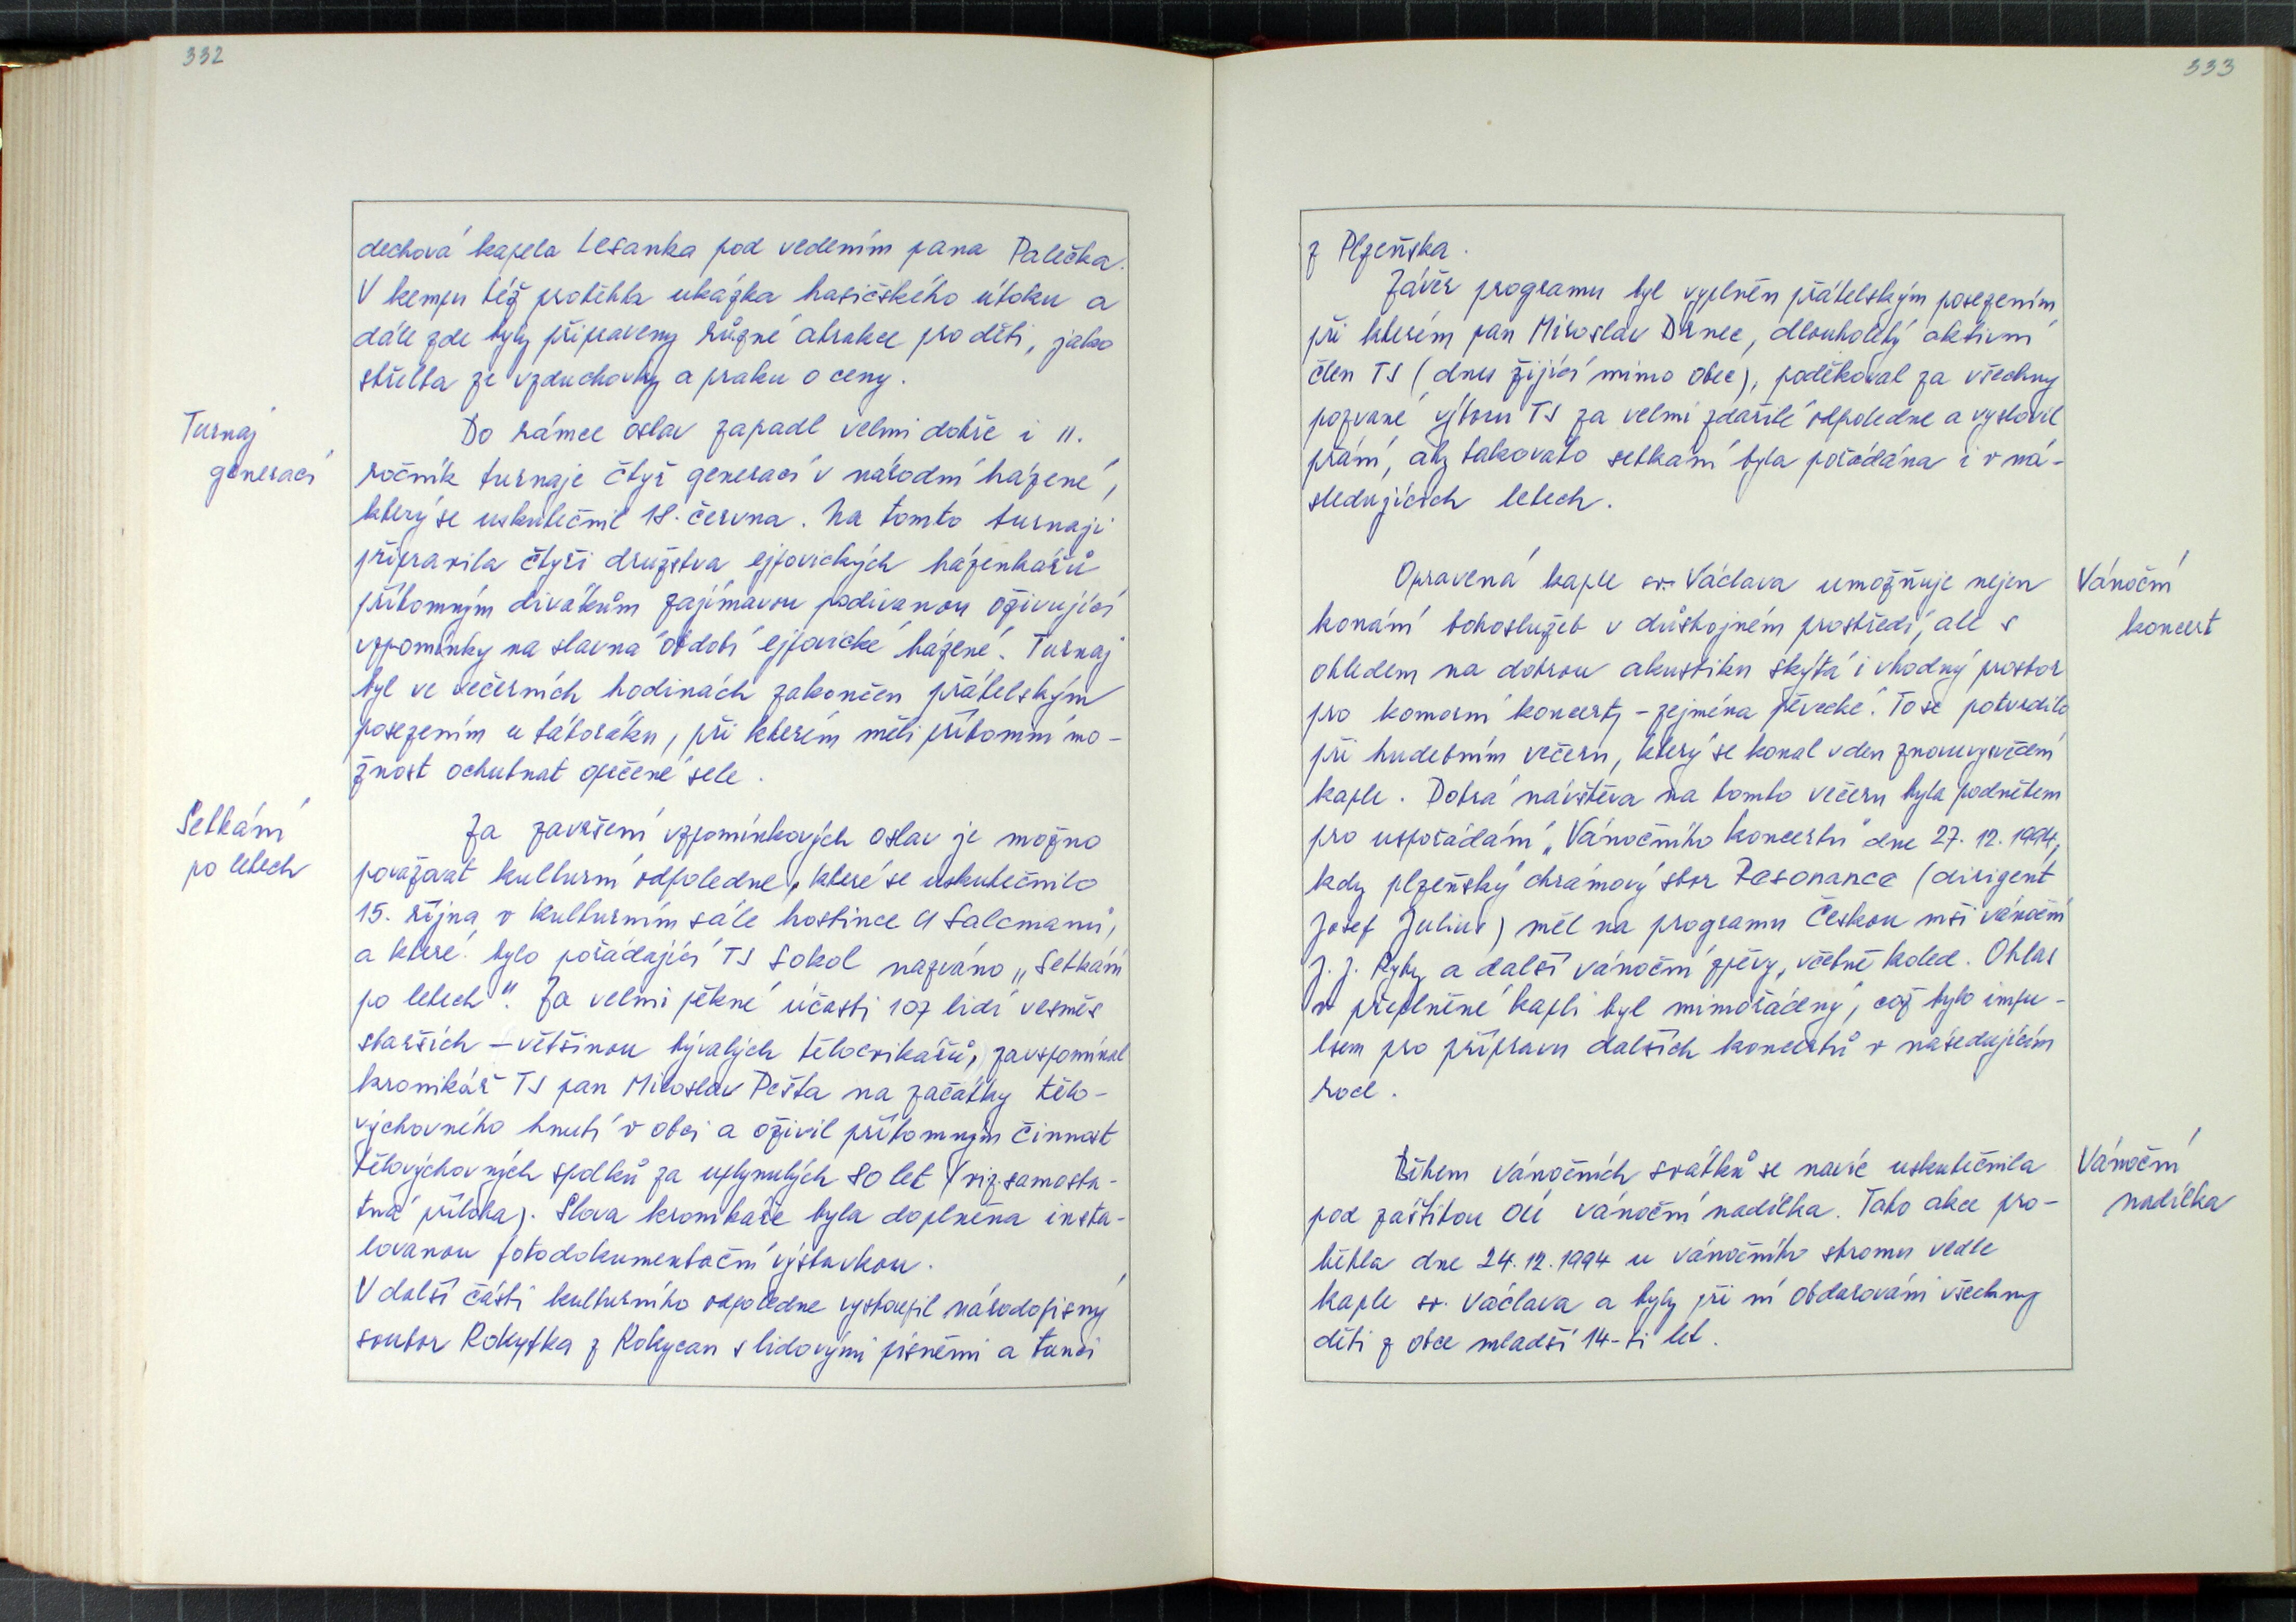 332
dechová kapela Lesanka pod vedením pana Palečka.
V kempu též proběhla ukázka hasičského útoku a
dále zde byly připraveny různé atrakce pro děti, jako
střelba ze vzduchovky a praku o ceny.
Turnaj
generací
Do rámce oslav zapadl velmi dobře i 11.
ročník turnaje čtyř generací v národní házené,
který se uskutečnil 18. června. Na tomto turnaji
připravila čtyři družstva ejpovických házenkářů
přítomným divákům zajímavou podívanou oživující
vzpomínky na slavná období ejpovické házené. Turnaj
byl ve večerních hodinách zakončen přátelským
posezením u táboráku, při kterém měli přítomní mo-
žnost ochutnat opečené sele.
Setkání
po letech
Za završení vzpomínkových oslav je možno
považovat kulturní odpoledne, které se uskutečnilo
15. října v kulturním sále hostince U Salcmanů,
a které bylo pořádající TJ Sokol nazváno „Setkání
po letech". Za velmi pěkné účasti 107 lidí vesměs
starších – většinou bývalých tělocvikářů, zavzpomínal
kronikář TJ pan Miloslav Pešta na začátky tělo-
výchovného hnutí v obci a oživil přítomným činnost
tělovýchovných spolků za uplynulých 80 let (viz. samosta-
tná příloha). Slova kronikáře byla doplněna insta-
lovanou fotodokumentační výstavkou.
V další části kulturního odpoledne vystoupil národopisný
soubor Rokytka z Rokycan s lidovými písněmi a tanci
333
z Plzeňska.
Závěr programu byl vyplněn přátelským posezením
při kterém pan Miroslav Drnec, dlouholetý aktivní
člen TJ (dnes žijící mimo obec), poděkoval za všechny
pozvané výboru TJ za velmi zdařilé odpoledne a vyslovil
přání, aby takováto setkání byla pořádána i v ná-
sledujících letech.
Vánoční
koncert
Opravená kaple sv. Václava umožňuje nejen
konání bohoslužeb v důstojném prostředí, ale s
ohledem na dobrou akustiku skýtá i vhodný prostor
pro komorní koncerty – zejména pěvecké. To se potvrdilo
při hudebním večeru, který se konal v den znovuvysvěcení
kaple. Dobrá návštěva na tomto večeru byla podnětem
pro uspořádání „Vánočního koncertu" dne 27. 12. 1994,
kdy plzeňský chrámový sbor Resonance (dirigent
Josef Julius) měl na programu Českou mši vánoční
J. J. Ryby a další vánoční zpěvy, včetně koled. Ohlas
v přeplněné kapli byl mimořádný, což bylo impu-
lsem pro přípravu dalších koncertů v násedujícím
roce.
Vánoční
nadílka
Během vánočních svátků se navíc uskutečnila
pod záštitou OÚ vánoční nadílka. Tato akce pro-
běhla dne 24. 12. 1994 u vánočního stromu vedle
kaple sv. Václava a byly při ní obdarováni všechny
děti z obce mladší 14-ti let.